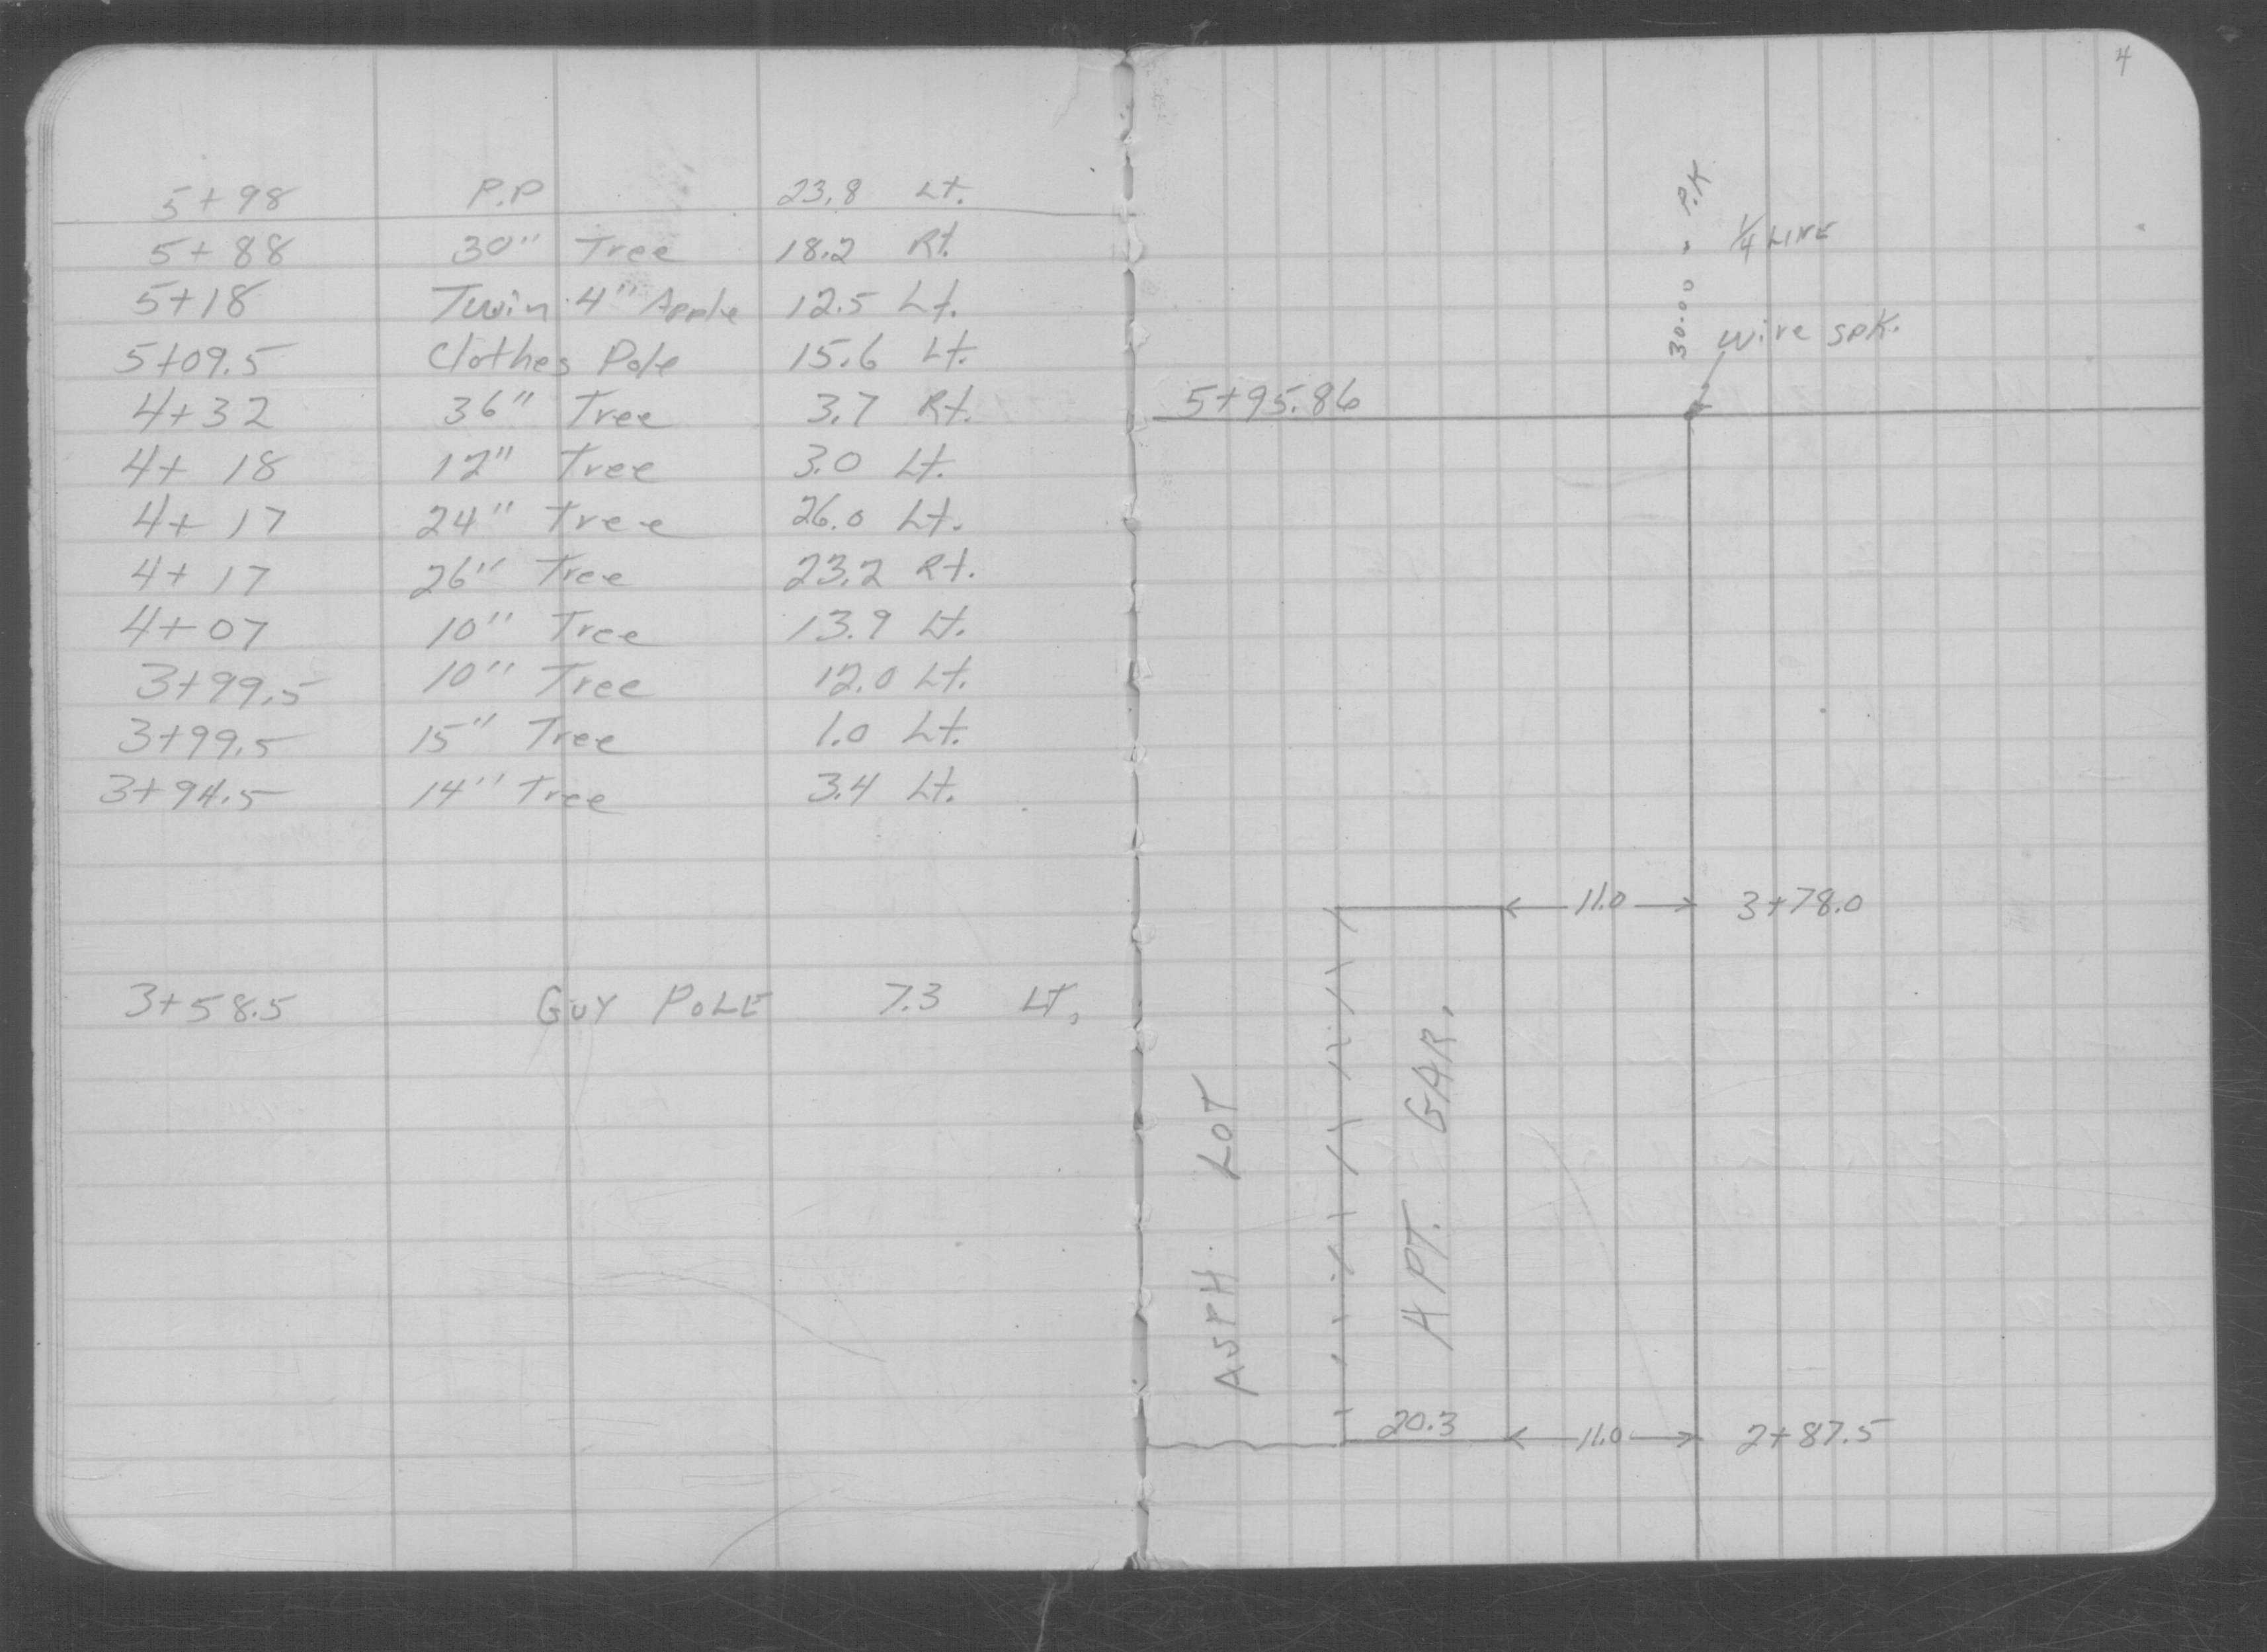 5+98 P.P 23.8 Lt.
5+88 30" Tree 18.2 Rt.
5+18 Twin 4" Apple 12.5 Lt.
5+09.5 Clothes Pole 15.6 Lt.
4+32 36" Tree 3.7 Rt.
4+18 12" Tree 3.0 Lt.
4+17 24" Tree 26.0 Lt.
4+17 26" Tree 23.2 Rt.
4+07 10" Tree 13.9 Lt.
3+99.5 10" Tree 12.0 Lt.
3+99.5 15" Tree 1.0 Lt.
3+94.5 14" Tree 3.4 Lt.
3+58.5 GUY POLE 7.3 LT.
4
P.K
1/4 LINE
30.00
wire spk.
5+95.86
11.0 3+78.0
ASPH. LOT
4 PT. GAR.
20.3 11.0 2+87.5